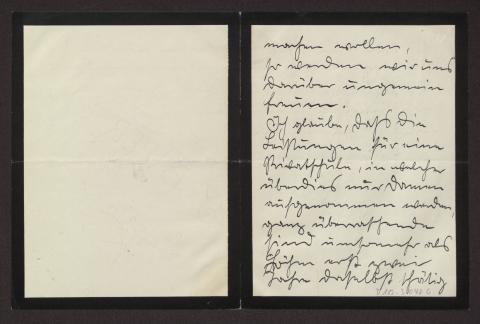 machen wollen,
so werden wir uns
darüber ungemein
freuen.
Ich glaube, daſs die
Leistungen für eine
Privatschule, in welcher
überdies nur Damen
aufgenommen werden,
ganz überraschende
sind umsomehr als
Böhm erst zwei
Jahre daselbst thätig